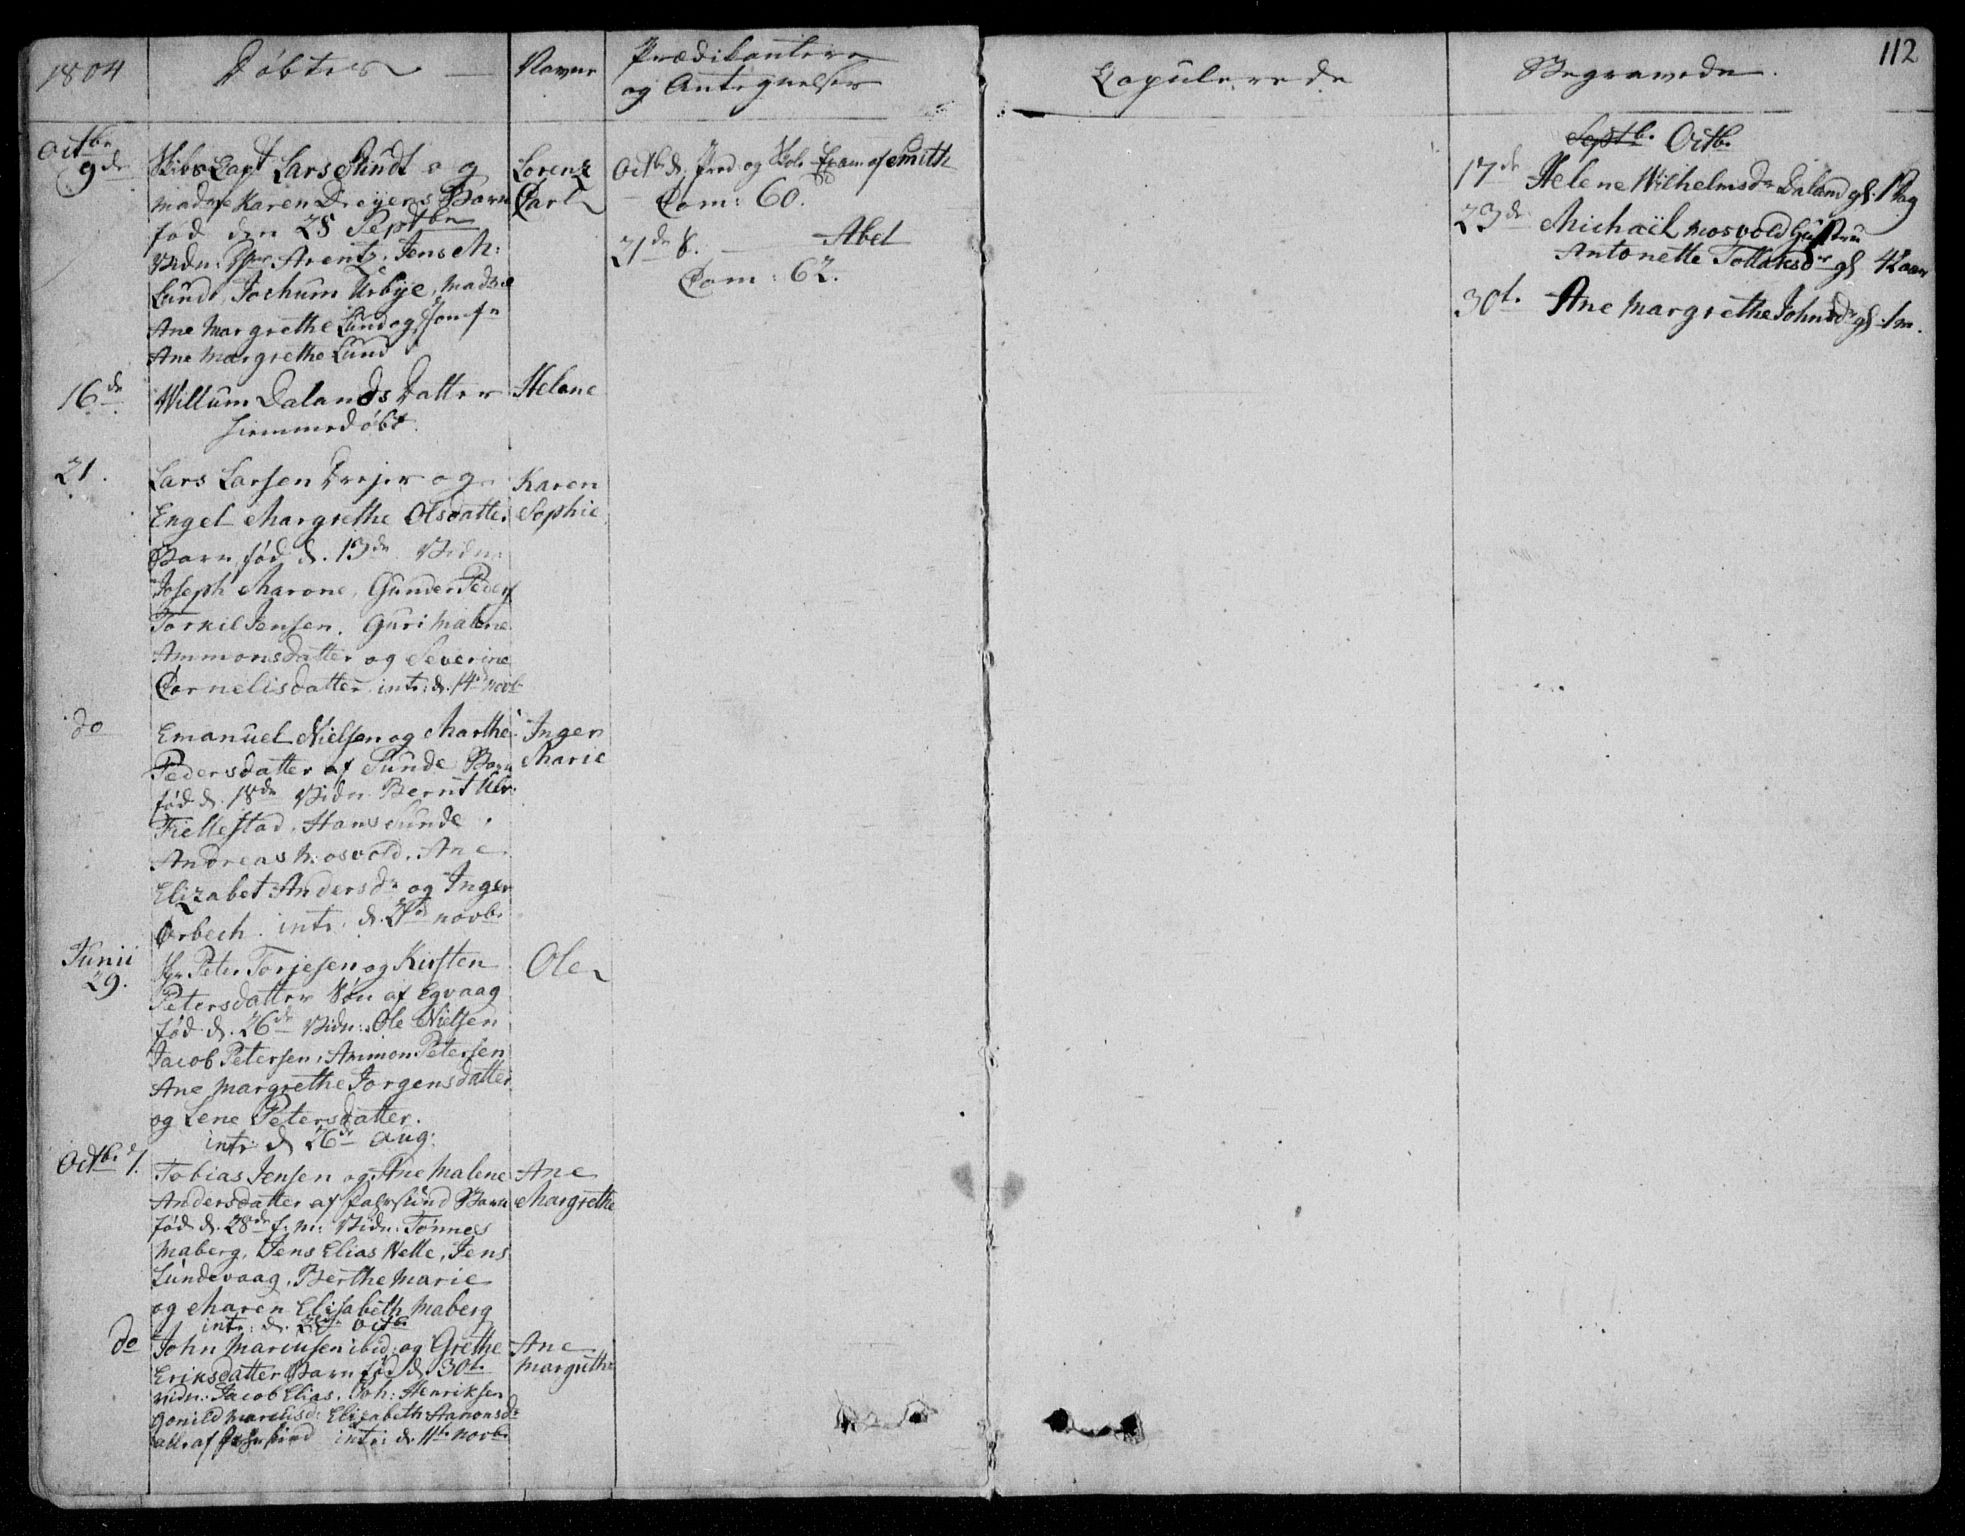 1804
Døbte
Navne
Prædikantere
og Antegnelser
Octbr
9de
Skibs Capt Lars Lundt og
mad Karen Dreyers Barn
fød den 25 Septbr
Vidn: Arentz, Jens M:
Lund, Jochum Urbye, Madme
Ane Margrethe Lund og Jomfr
Ane Margrethe Lund
Lorenz
Carl
Octb d. Præd og Exam af Smith
Com: 60.
21de 8. — Abel
Com: 62.
16de
Willum Dalands Datter
hiemmedøbt
Helene
21.
Lars Larsen Drejer og
Engel Margrethe Olsdatter
Barn fød d. 13de Vidn
Joseph Marone, Gunder Peders
Torkil Jensen. Guri Malene
Ammonsdatter og Severine
Cornelisdatter. intr: d. 14 Novb
Karen
Sophie
do
Emanuel Nielsen og Marthe
Pedersdatter af Sunde Barn
fød d. 18de Vidn Bernt
Fiellestad, Hans Sunde
Andreas Mosvold, Ane
Elizabet Andersdr og Inger
Orbech. intr. d. novbr
Inger
Marie
Junii
29.
Peter Torjesen og Kirsten
Petersdatter Søn af Egvaag
fød d. 26de Vidn: Ole Nielsen
Jacob Petersen, Ammon Petersen
Ane Margrethe Jorgensdatter
og Lene Petersdatter.
intr d 26de Aug:
Ole
Octbr 7.
Tobias Jensen og Ane Malene
Andersdatter af Farsund Barn
fød d. 28de f. m: Vidn: Tønnes
Maberg, Jens Elias Nelle, Jens
Lundevaag, Berthe Marie
og Maren Elisabeth Maberg
intr: d. Octb
Ane
Margrethe
do
John Marcusen ibid: og Grethe
Eriksdatter Barn fød d. 30t.
vidn: Jacob Elias, Joh: Henriksen
Gonild Marcusd: Elizabeth Aanonsdr
alle af intr: d. 11te Novbr
Ane
Margrethe
112
Copulerede
Begravede.
Septb. Octb.
17de Helene Wilhelmsdr Daland gl. 1 Dag
23de Michaël Mosvold Hustru
Antonette Tollaksdr gl 42 aar
30t. Ane Margrethe Johnsdr gl. 1 m.